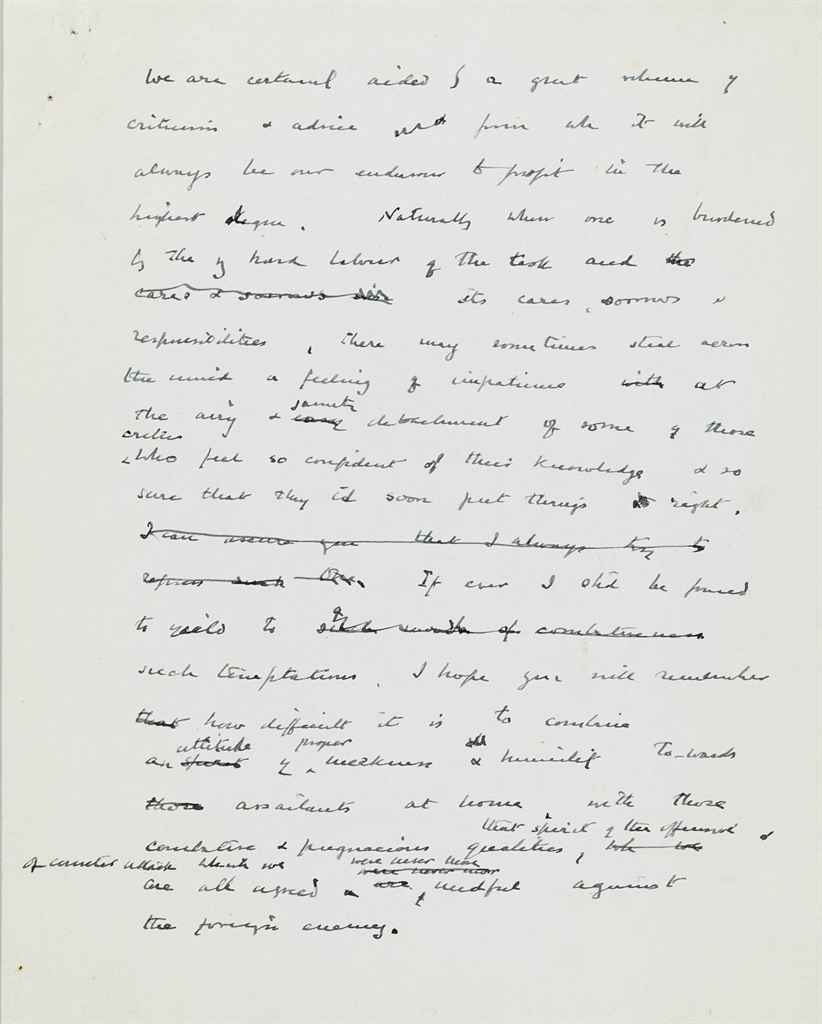 We are certainl aided by a great volume of
criticism & advice from wh it will
always be our endeavour to profit in the
highest degree. Naturally when one is burdened
by the y hard labour of the task and the
cares & sorrows its cares, sorrows &
responsibilities, there may sometimes steal across
the mind a feeling of impatience with at
the airy & easy detachment of some of those
critics
who feel so confident of their knowledge & so
sure that they cd soon put things right.
I can assure you that I always try to
repress such If ever I shd be forced
to yield to such moods of combativeness
such temptations, I hope you will remember
that how difficult it is to combine
attitude proper
an spirit of meekness & humility to-wards
those assailants at home, with those
that spirit of the offensive &
combative & pugnacious qualities, wh we
of counter attack which we were never more
were never mor
are all agreed are, needful against
the foreign enemy.